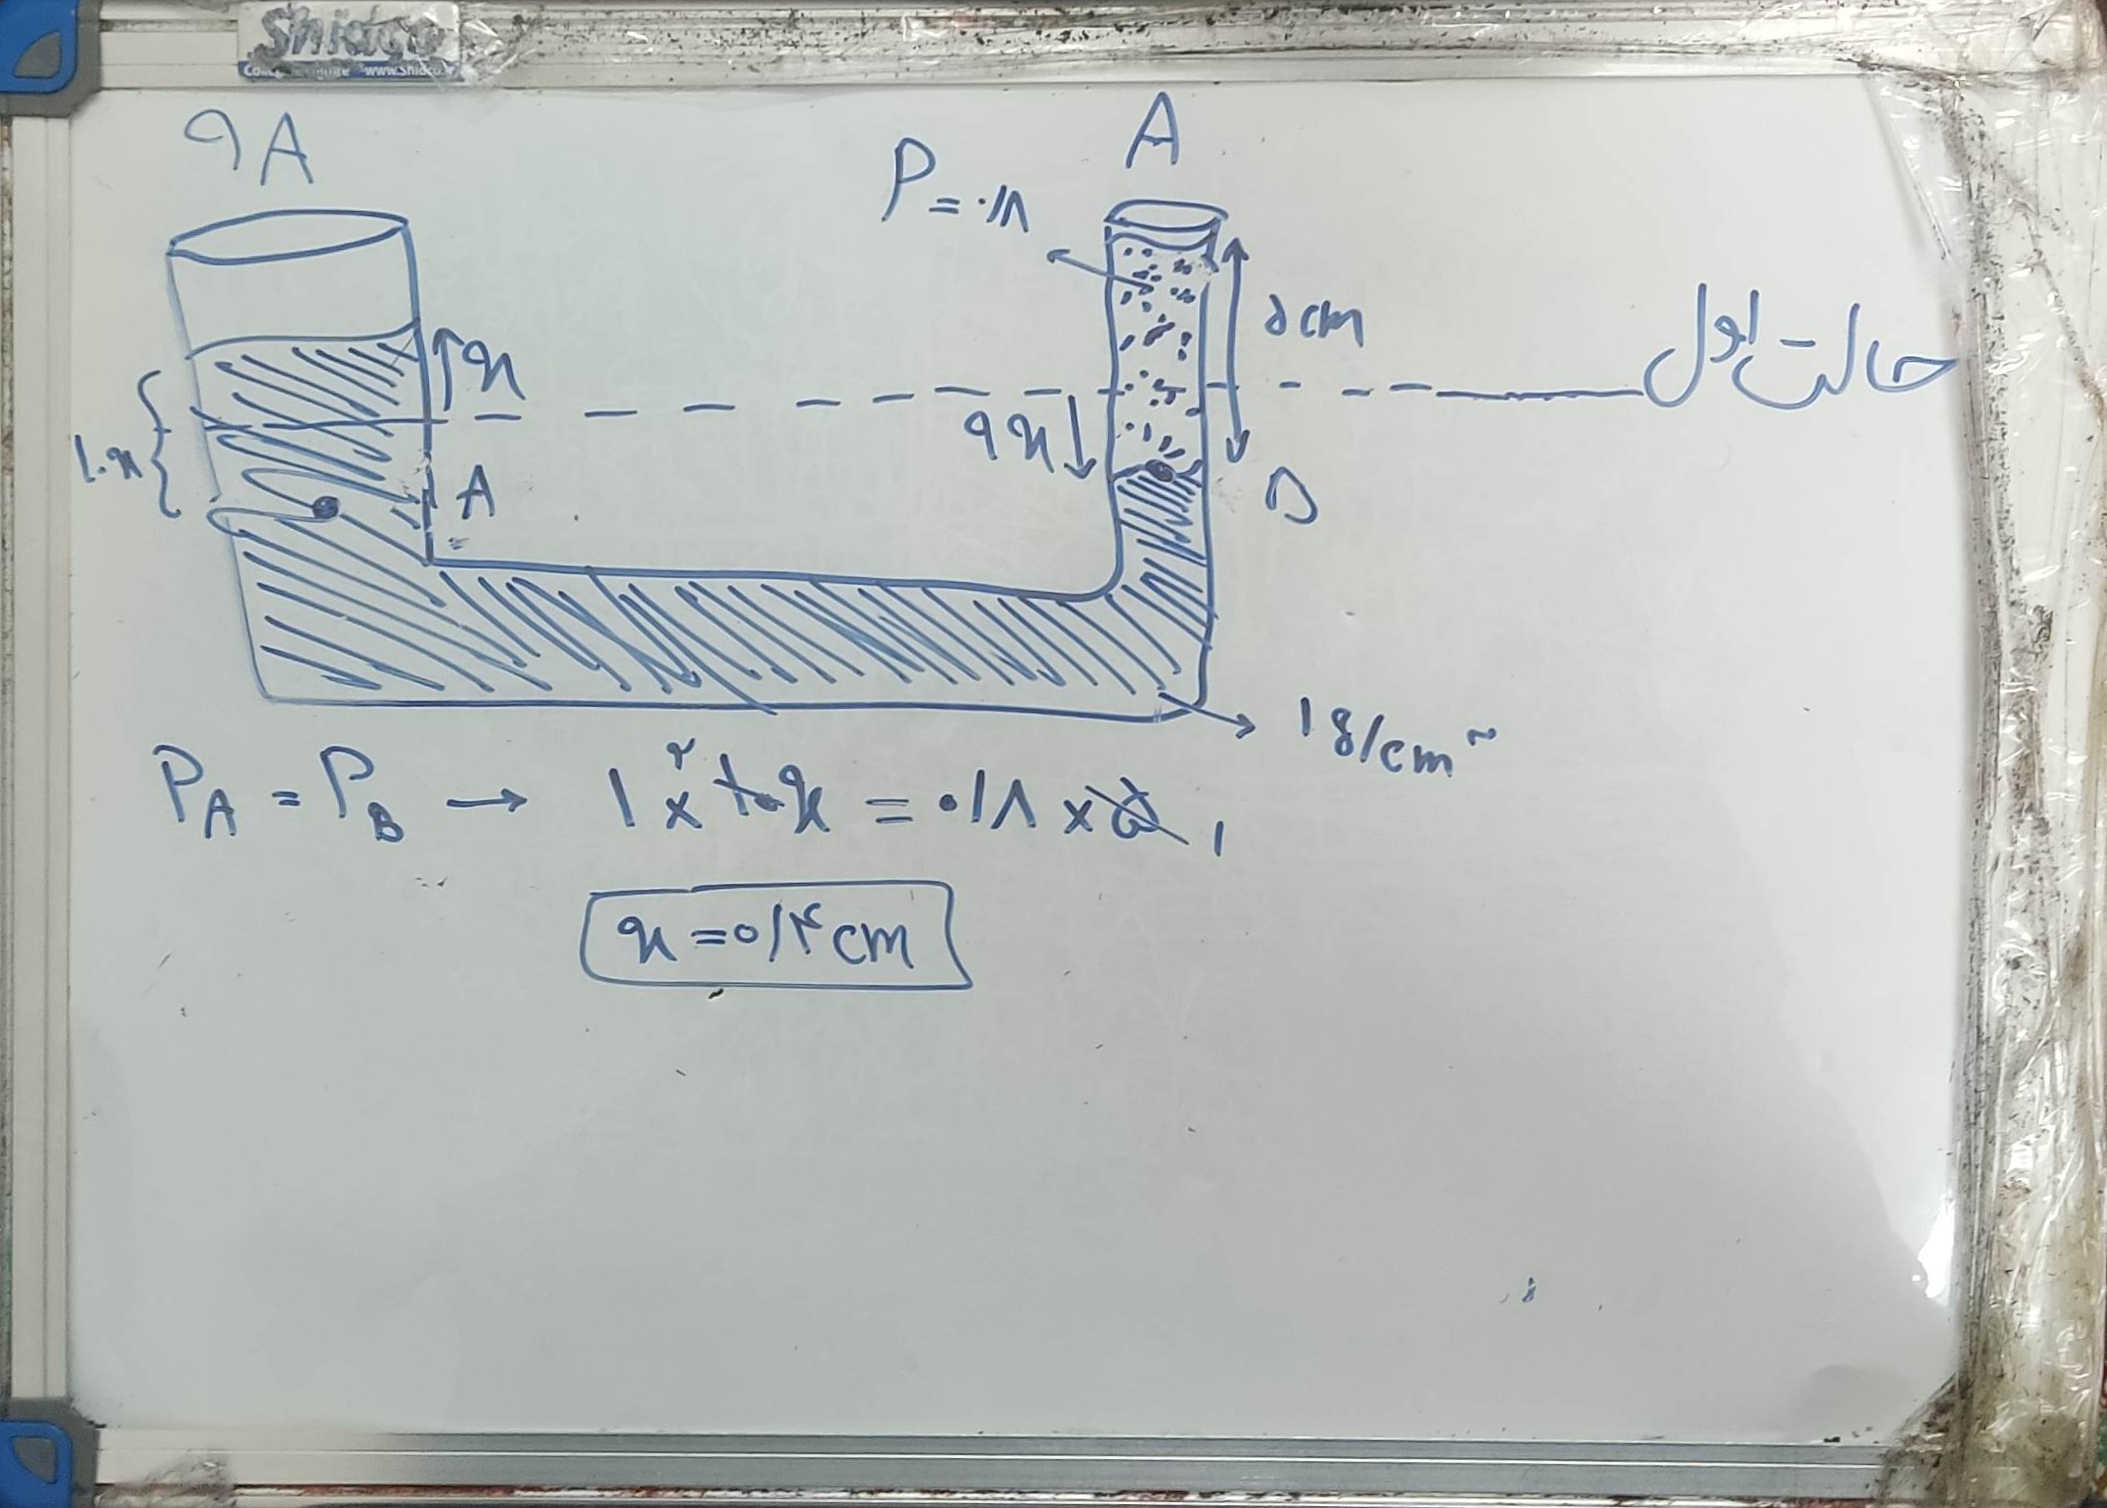 Shidco
www.shidco.ir
۹A
A
P = ۰/۸
۵cm
x
حالت اول
۹x
۱۰x
A
B
۱ g/cm۳
P_A = P_B → ۱ × ۱۰x = ۰/۸ × ۵
۲
۱
x = ۰/۴ cm